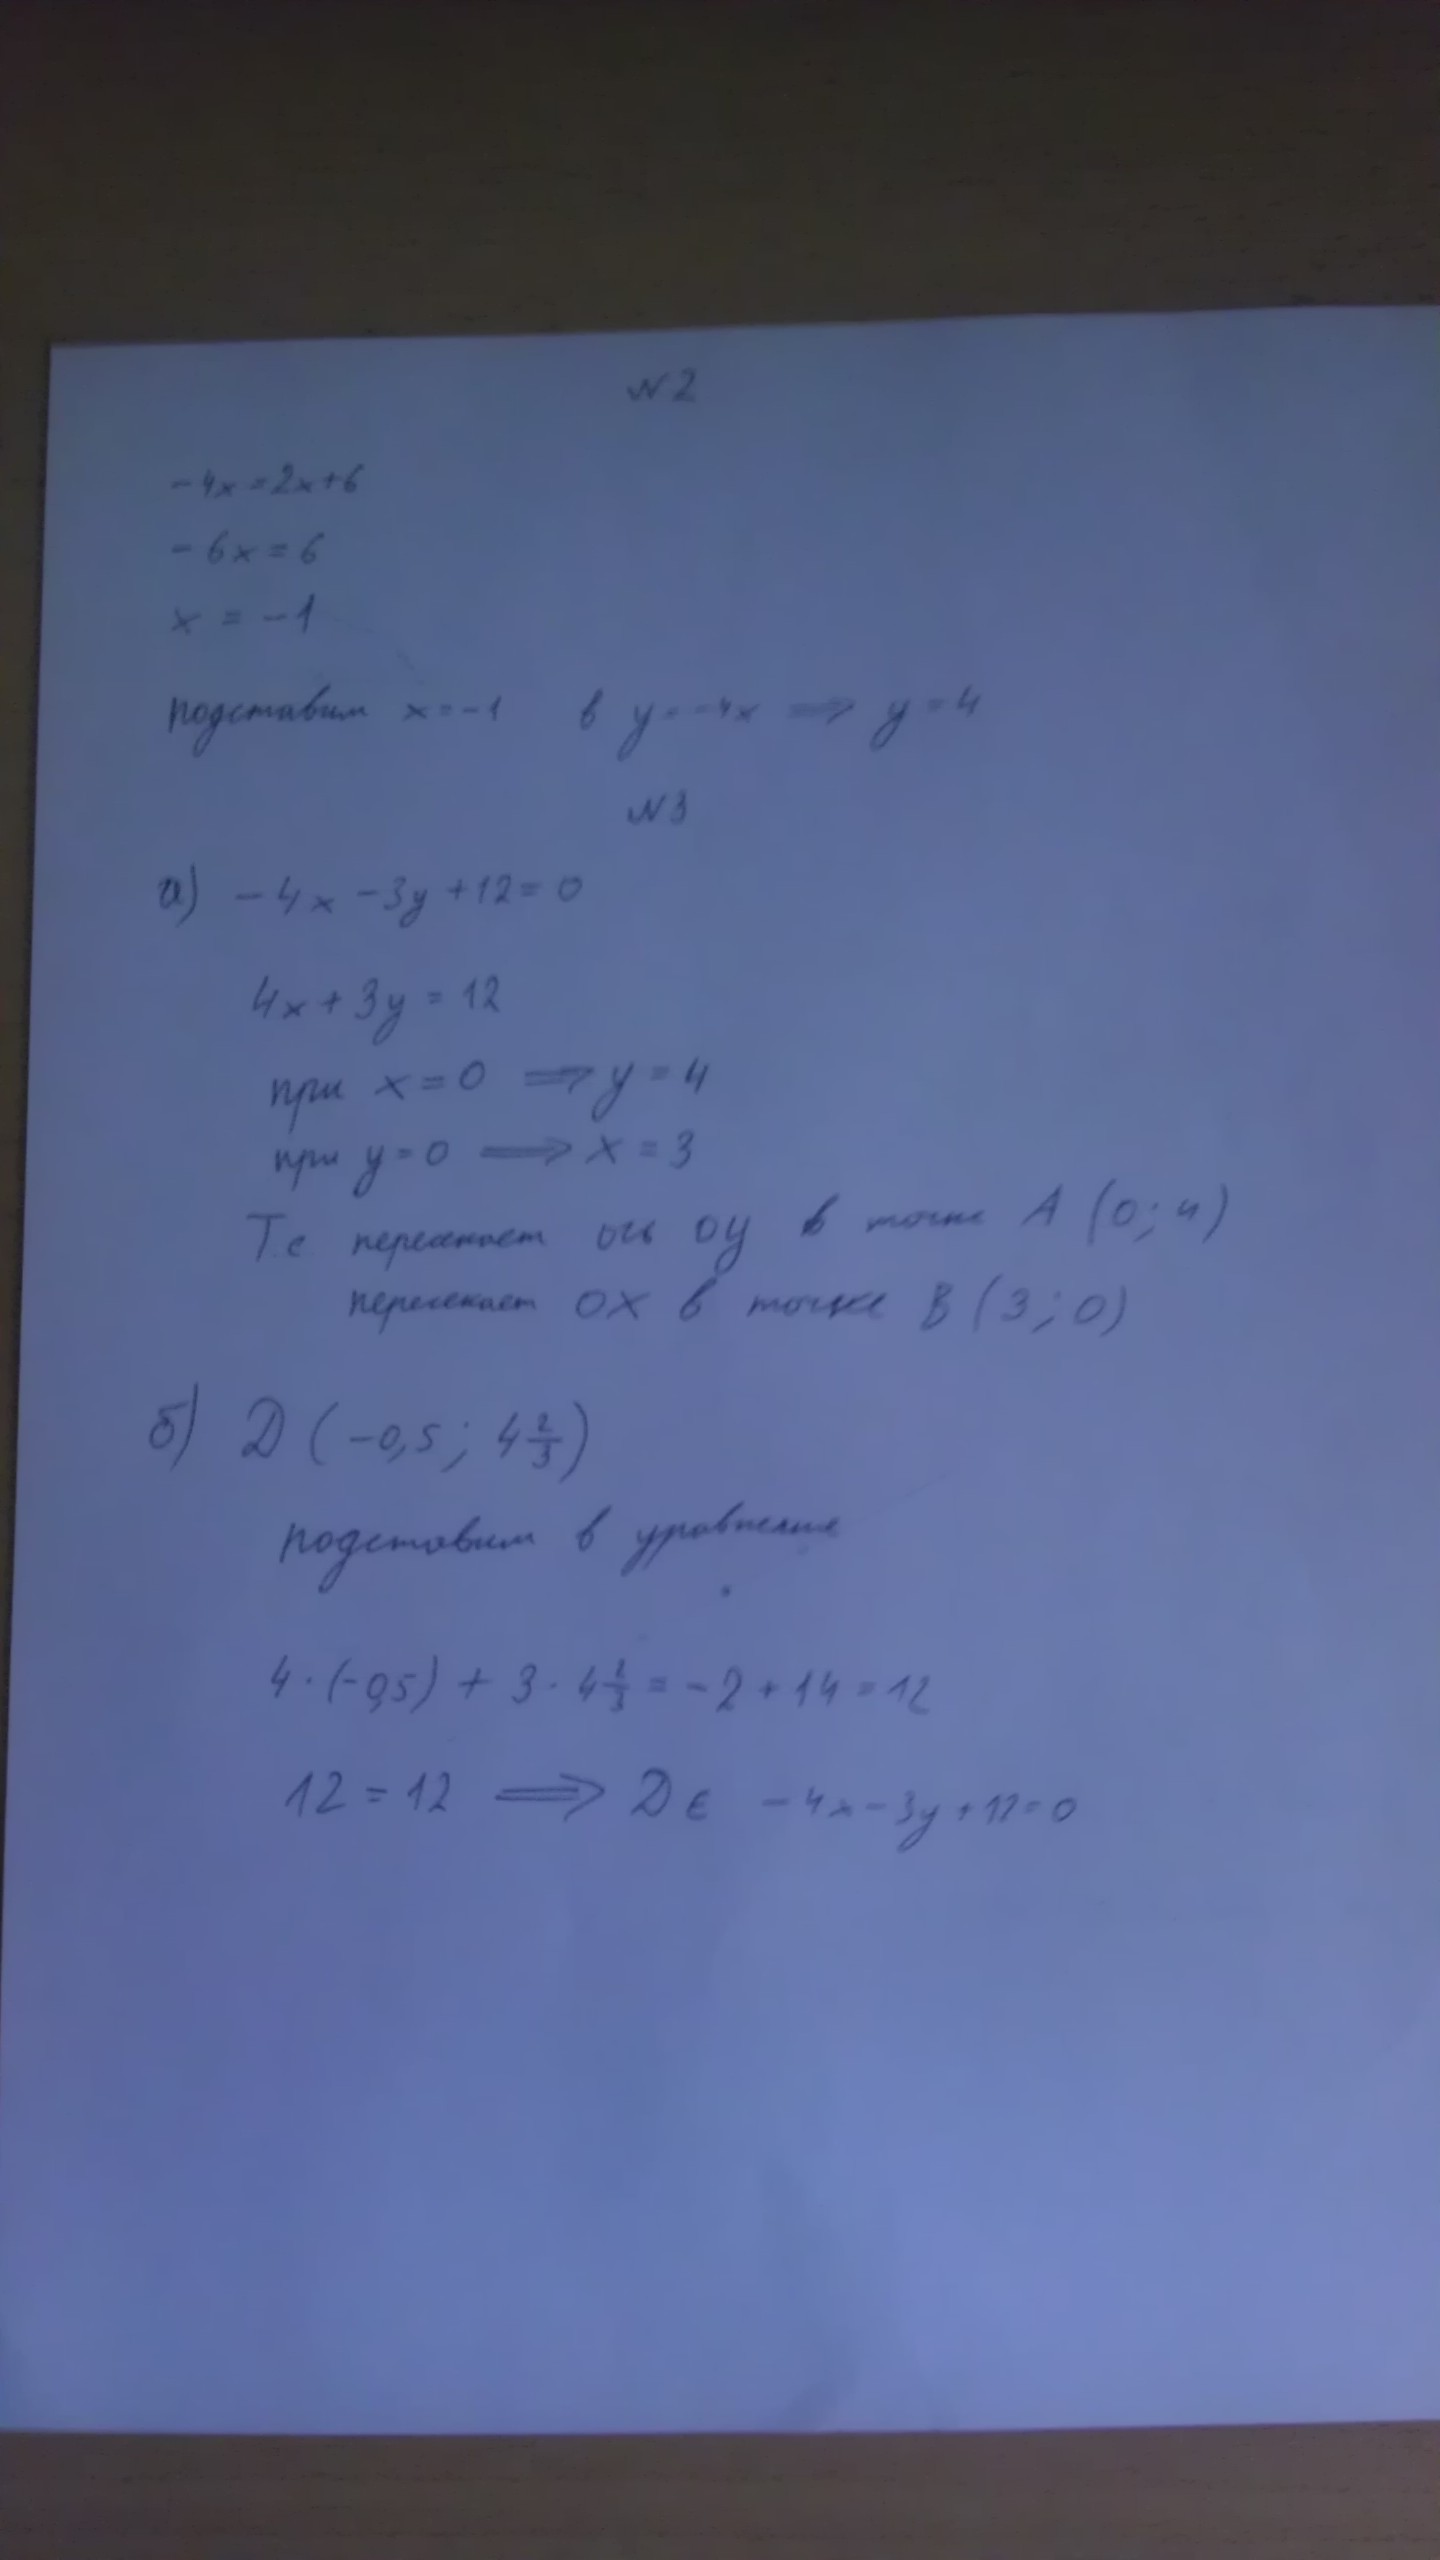 №2
-4x=2x+6
-6x=6
x = -1
подставим x=-1 в y=-4x ⟹ y=4
№3
а) -4x-3y+12=0
4x+3y=12
при x=0 ⟹ y=4
при y=0 ⟹ x=3
Те пересекает ось OY в точке A (0;4)
пересекает OX в точке B (3;0)
б) D (-0,5; 4 2/3)
подставим в уравнение
4·(-0,5) + 3·4 2/3 = -2+14=12
12=12 ⟹ D ∈ -4x-3y+12=0